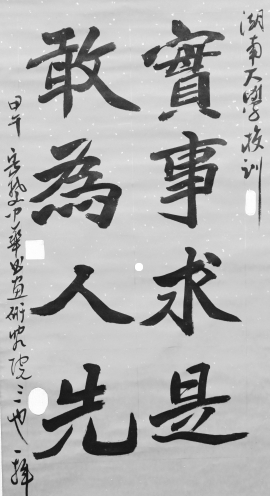 湖南大學校訓
實事求是
敢為人先
甲午 岳麓中華書画研究院三也一拜